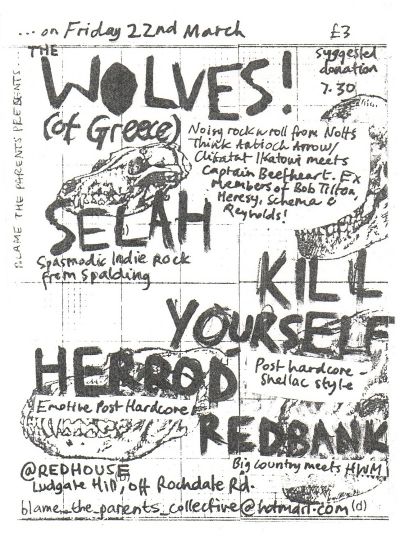 ...on Friday 22nd March
£3
suggested
donation
7.30
BLAME THE PARENTS PRESENTS...
THE
WOLVES!
(of Greece)
Noisy rock n roll from Notts
Think Antioch Arrow/
Clikatat Ikatowi meets
Captain Beefheart. Ex
members of Bob Tilton,
Heresy, Schema &
Reynolds!
SELAH
Spasmodic Indie Rock
from Spalding
KILL
YOURSELF
Post hardcore -
Shellac style
HERROD
Emotive Post Hardcore
REDBANK
Big country meets HWM
@REDHOUSE
Ludgate Hill, off Rochdale Rd.
blame_the_parents_collective@hotmail.com (d)